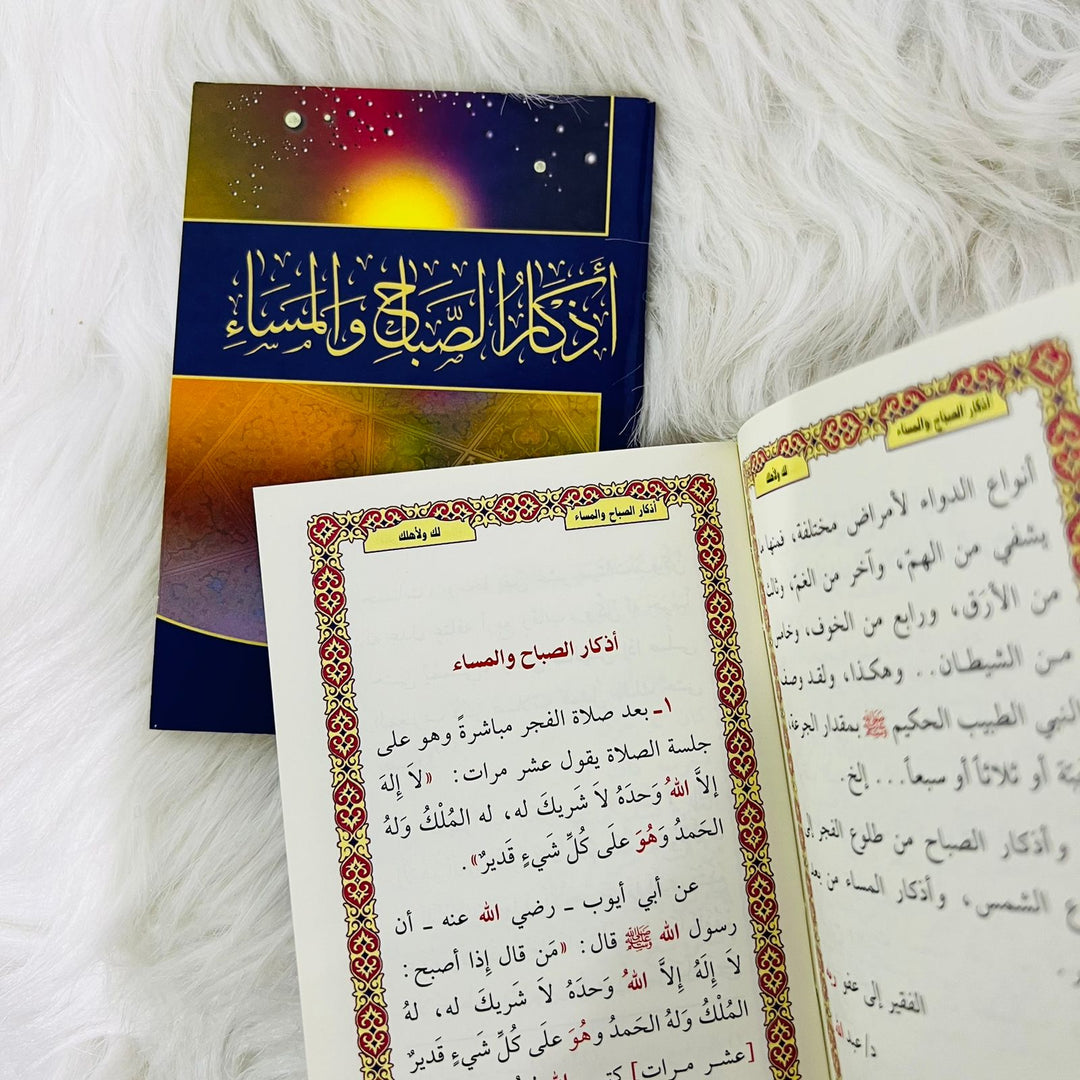 أَذْكَارُ الصَّبَاحِ وَالْمَسَاءِ
أذكار الصباح والمساء
لك ولأهلك
أنواع الدواء لأمراض مختلفة، فمنها
يشفي من الهمّ، وآخر من الغمّ، وثالث
من الأرَق، ورابع من الخوف، وخامس
من الشيطان.. وهكذا، ولقد وصف
النبي الطبيب الحكيم ﷺ بمقدار الجرعة
أو ثلاثاً أو سبعاً... إلخ.
وأذكار الصباح من طلوع الفجر إلى
الشمس، وأذكار المساء من بعد
الفقير إلى عفو
د/عبد
أذكار الصباح والمساء
لك ولأهلك
أذكار الصباح والمساء
١ـ بعد صلاة الفجر مباشرةً وهو على
جلسة الصلاة يقول عشر مرات: «لاَ إِلهَ
إلاَّ اللهُ وَحدَهُ لاَ شَريكَ له، له المُلْكُ وَلهُ
الحَمدُ وَهُوَ علَى كُلِّ شَيءٍ قَديرٌ».
عن أبي أيوب ـ رضي الله عنه ـ أن
رسول الله ﷺ قال: «مَن قال إِذا أصبح:
لاَ إِلَهُ إِلاَّ اللهُ وَحدَهُ لاَ شَريكَ له، لهُ
المُلْكُ وَلهُ الحَمدُ وهُوَ علَى كُلِّ شَيءٍ قَديرٌ
[عشر مرات]